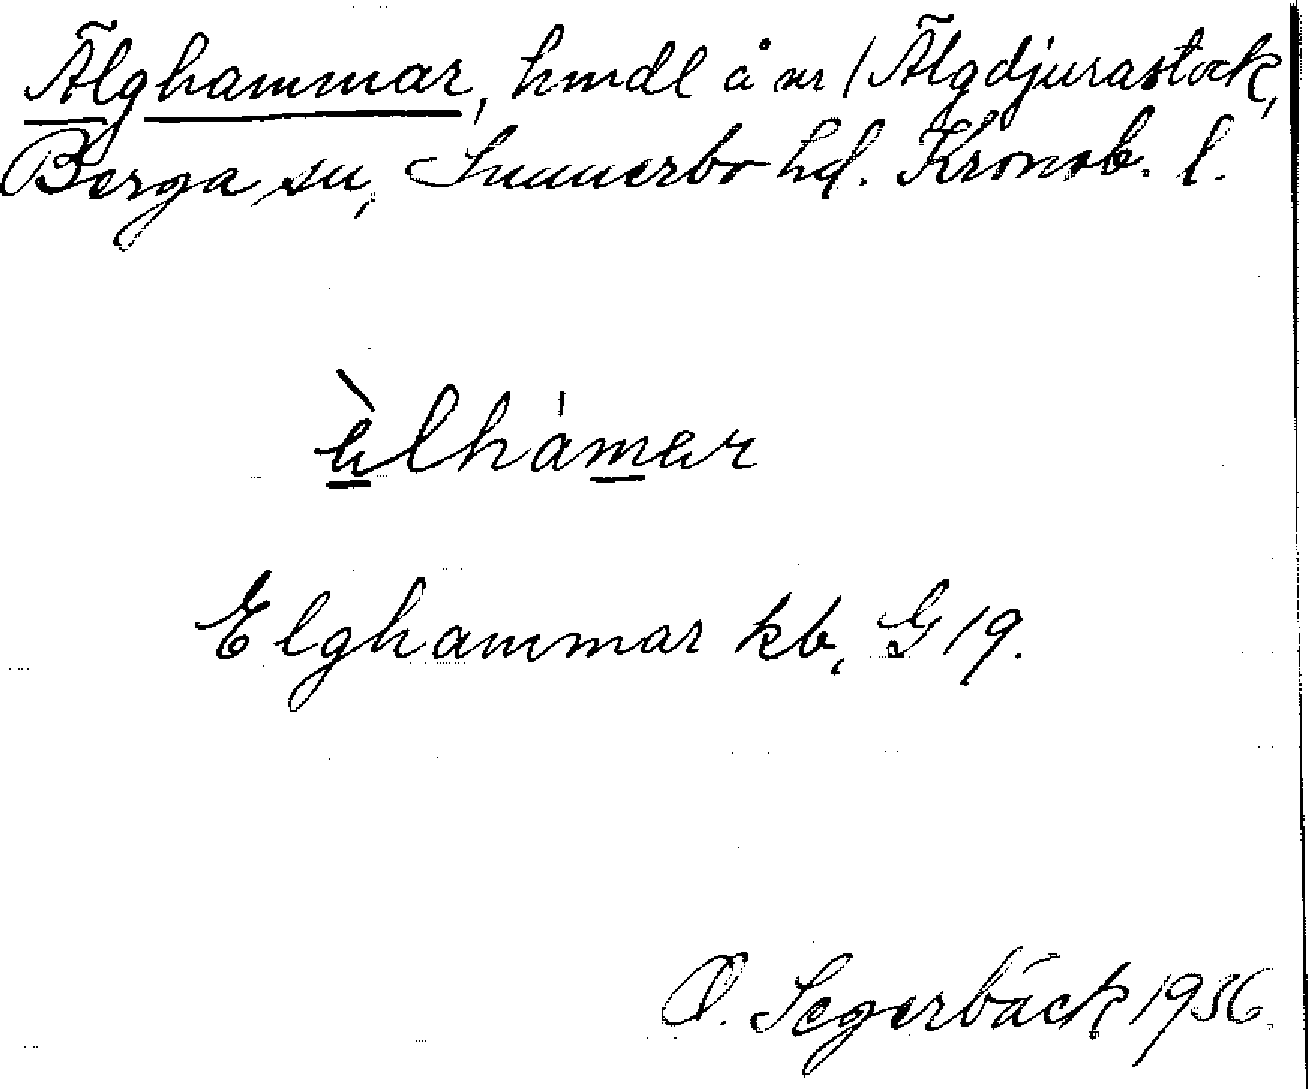 Älghammar, hmdl å nr 1 Älgdjurastock,
Berga sn, Sunnerbo hd. Kronob. l.
èlhámar
Elghammar kb, G 19.
O. Segerbäck 1936.